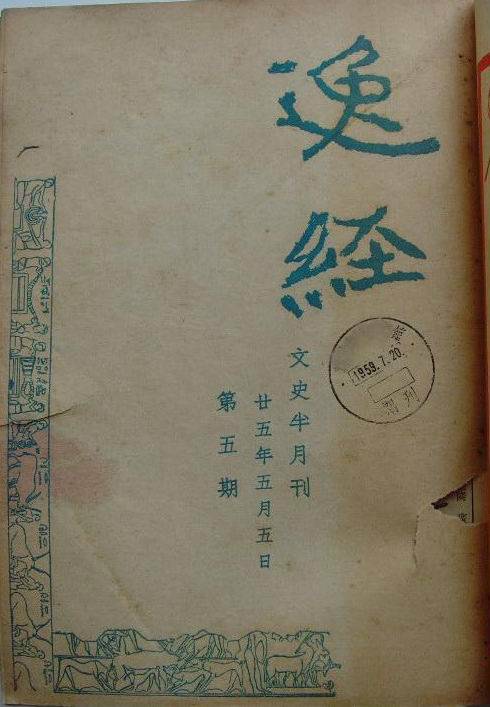 逸
経
文史半月刊
廿五年五月五日
第五期
1959.7.20.
刊